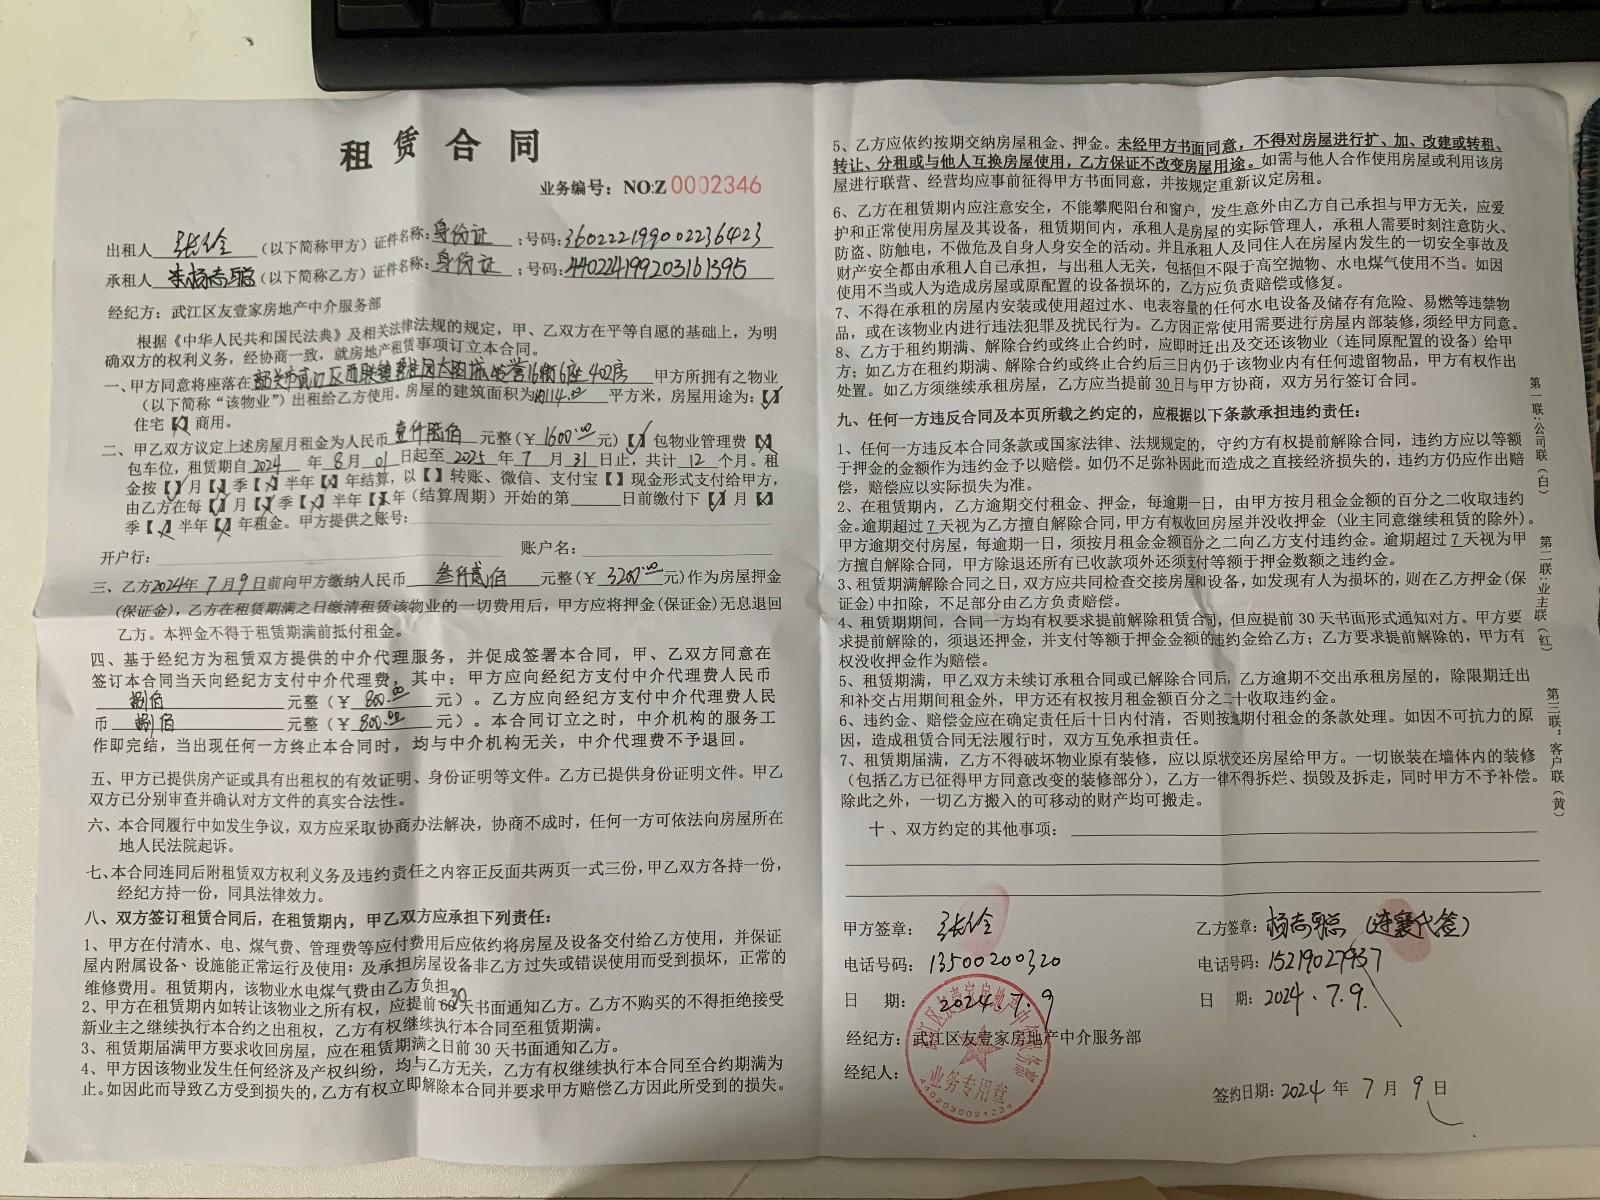 租赁合同
业务编号：NO:Z 0002346
出租人 （以下简称甲方）证件名称：身份证 ；号码：360222199002236423
承租人 杨志聪（以下简称乙方）证件名称：身份证 ；号码：440224199203161395
经纪方：武江区友壹家房地产中介服务部
根据《中华人民共和国民法典》及相关法律法规的规定，甲、乙双方在平等自愿的基础上，为明
确双方的权利义务，经协商一致，就房地产租赁事项订立本合同。
一、甲方同意将座落在 韶关市武江区西联镇碧桂园太阳城 16街6座402房 甲方所拥有之物业
（以下简称“该物业”）出租给乙方使用。房屋的建筑面积为 约114.00 平方米，房屋用途为：【✓】
住宅【×】商用。
二、甲乙双方议定上述房屋月租金为人民币 壹仟陆佰 元整（￥ 1600.00 元）【✓】包物业管理费【×】
包车位，租赁期自 2024 年 8 月 01 日起至 2025 年 7 月 31 日止，共计 12 个月。租
金按【✓】月【×】季【×】半年【×】年结算，以【 】转账、微信、支付宝【 】现金形式支付给甲方，
由乙方在每【✓】月【×】季【×】半年【×】年（结算周期）开始的第 日前缴付下【✓】月【×】
季【×】半年【×】年租金。甲方提供之账号：
开户行： 账户名：
三、乙方2024年7月9日前向甲方缴纳人民币 叁仟贰佰 元整（￥ 3200.00 元）作为房屋押金
（保证金），乙方在租赁期满之日缴清租赁该物业的一切费用后，甲方应将押金（保证金）无息退回
乙方。本押金不得于租赁期满前抵付租金。
四、基于经纪方为租赁双方提供的中介代理服务，并促成签署本合同，甲、乙双方同意在
签订本合同当天向经纪方支付中介代理费，其中：甲方应向经纪方支付中介代理费人民币
捌佰 元整（￥ 800.00 元）。乙方应向经纪方支付中介代理费人民
币 捌佰 元整（￥ 800.00 元）。本合同订立之时，中介机构的服务工
作即完结，当出现任何一方终止本合同时，均与中介机构无关，中介代理费不予退回。
五、甲方已提供房产证或具有出租权的有效证明、身份证明等文件。乙方已提供身份证明文件。甲乙
双方已分别审查并确认对方文件的真实合法性。
六、本合同履行中如发生争议，双方应采取协商办法解决，协商不成时，任何一方可依法向房屋所在
地人民法院起诉。
七、本合同连同后附租赁双方权利义务及违约责任之内容正反面共两页一式三份，甲乙双方各持一份，
经纪方持一份，同具法律效力。
八、双方签订租赁合同后，在租赁期内，甲乙双方应承担下列责任：
1、甲方在付清水、电、煤气费、管理费等应付费用后应依约将房屋及设备交付给乙方使用，并保证
屋内附属设备、设施能正常运行及使用；及承担房屋设备非乙方过失或错误使用而受到损坏，正常的
维修费用。租赁期内，该物业水电煤气费由乙方负担。
2、甲方在租赁期内如转让该物业之所有权，应提前 30 天书面通知乙方。乙方不购买的不得拒绝接受
新业主之继续执行本合约之出租权，乙方有权继续执行本合同至租赁期满。
3、租赁期届满甲方要求收回房屋，应在租赁期满之日前30天书面通知乙方。
4、甲方因该物业发生任何经济及产权纠纷，均与乙方无关，乙方有权继续执行本合同至合约期满为
止。如因此而导致乙方受到损失的，乙方有权立即解除本合同并要求甲方赔偿乙方因此所受到的损失。
5、乙方应依约按期交纳房屋租金、押金。未经甲方书面同意，不得对房屋进行扩、加、改建或转租、
转让、分租或与他人互换房屋使用，乙方保证不改变房屋用途。如需与他人合作使用房屋或利用该房
屋进行联营、经营均应事前征得甲方书面同意，并按规定重新议定房租。
6、乙方在租赁期内应注意安全，不能攀爬阳台和窗户，发生意外由乙方自己承担与甲方无关，应爱
护和正常使用房屋及其设备，租赁期间内，承租人是房屋的实际管理人，承租人需要时刻注意防火、
防盗、防触电，不做危及自身人身安全的活动。并且承租人及同住人在房屋内发生的一切安全事故及
财产安全都由承租人自己承担，与出租人无关，包括但不限于高空抛物、水电煤气使用不当。如因
使用不当或人为造成房屋或原配置的设备损坏的，乙方应负责赔偿或修复。
7、不得在承租的房屋内安装或使用超过水、电表容量的任何水电设备及储存有危险、易燃等违禁物
品，或在该物业内进行违法犯罪及扰民行为。乙方因正常使用需要进行房屋内部装修，须经甲方同意。
8、乙方于租约期满、解除合约或终止合约时，应即时迁出及交还该物业（连同原配置的设备）给甲
方；如乙方在租约期满、解除合约或终止合约后三日内仍于该物业内有任何遗留物品，甲方有权作出
处置。如乙方须继续承租房屋，乙方应当提前30日与甲方协商，双方另行签订合同。
九、任何一方违反合同及本页所载之约定的，应根据以下条款承担违约责任：
1、任何一方违反本合同条款或国家法律、法规规定的，守约方有权提前解除合同，违约方应以等额
于押金的金额作为违约金予以赔偿。如仍不足弥补因此而造成之直接经济损失的，违约方仍应作出赔
偿，赔偿应以实际损失为准。
2、在租赁期内，乙方逾期交付租金、押金，每逾期一日，由甲方按月租金金额的百分之二收取违约
金。逾期超过 7 天视为乙方擅自解除合同，甲方有权收回房屋并没收押金（业主同意继续租赁的除外）。
甲方逾期交付房屋，每逾期一日，须按月租金金额百分之二向乙方支付违约金。逾期超过 7 天视为甲
方擅自解除合同，甲方除退还所有已收款项外还须支付等额于押金数额之违约金。
3、租赁期满解除合同之日，双方应共同检查交接房屋和设备，如发现有人为损坏的，则在乙方押金（保
证金）中扣除，不足部分由乙方负责赔偿。
4、租赁期期间，合同一方均有权要求提前解除租赁合同，但应提前30天书面形式通知对方。甲方要
求提前解除的，须退还押金，并支付等额于押金金额的违约金给乙方；乙方要求提前解除的，甲方有
权没收押金作为赔偿。
5、租赁期满，甲乙双方未续订承租合同或已解除合同后，乙方逾期不交出承租房屋的，除限期迁出
和补交占用期间租金外，甲方还有权按月租金额百分之二十收取违约金。
6、违约金、赔偿金应在确定责任后十日内付清，否则按逾期付租金的条款处理。如因不可抗力的原
因，造成租赁合同无法履行时，双方互免承担责任。
7、租赁期届满，乙方不得破坏物业原有装修，应以原状交还房屋给甲方。一切嵌装在墙体内的装修
（包括乙方已征得甲方同意改变的装修部分），乙方一律不得拆烂、损毁及拆走，同时甲方不予补偿。
除此之外，一切乙方搬入的可移动的财产均可搬走。
十、双方约定的其他事项：
甲方签章： 乙方签章：杨志聪（连襄代签）
电话号码：13500200320 电话号码：15219027937
日 期：2024.7.9 日 期：2024.7.9.
经纪方：武江区友壹家房地产中介服务部
经纪人：
签约日期：2024年7月9日
武江区友壹家房地产中介服务部
业务专用章
4402030021234
第一联：公司联（白）
第二联：业主联（红）
第三联：客户联（黄）